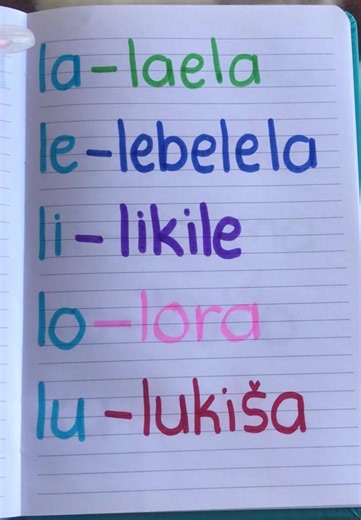 la-laela
le-lebelela
li-likile
lo-lora
lu-lukiša